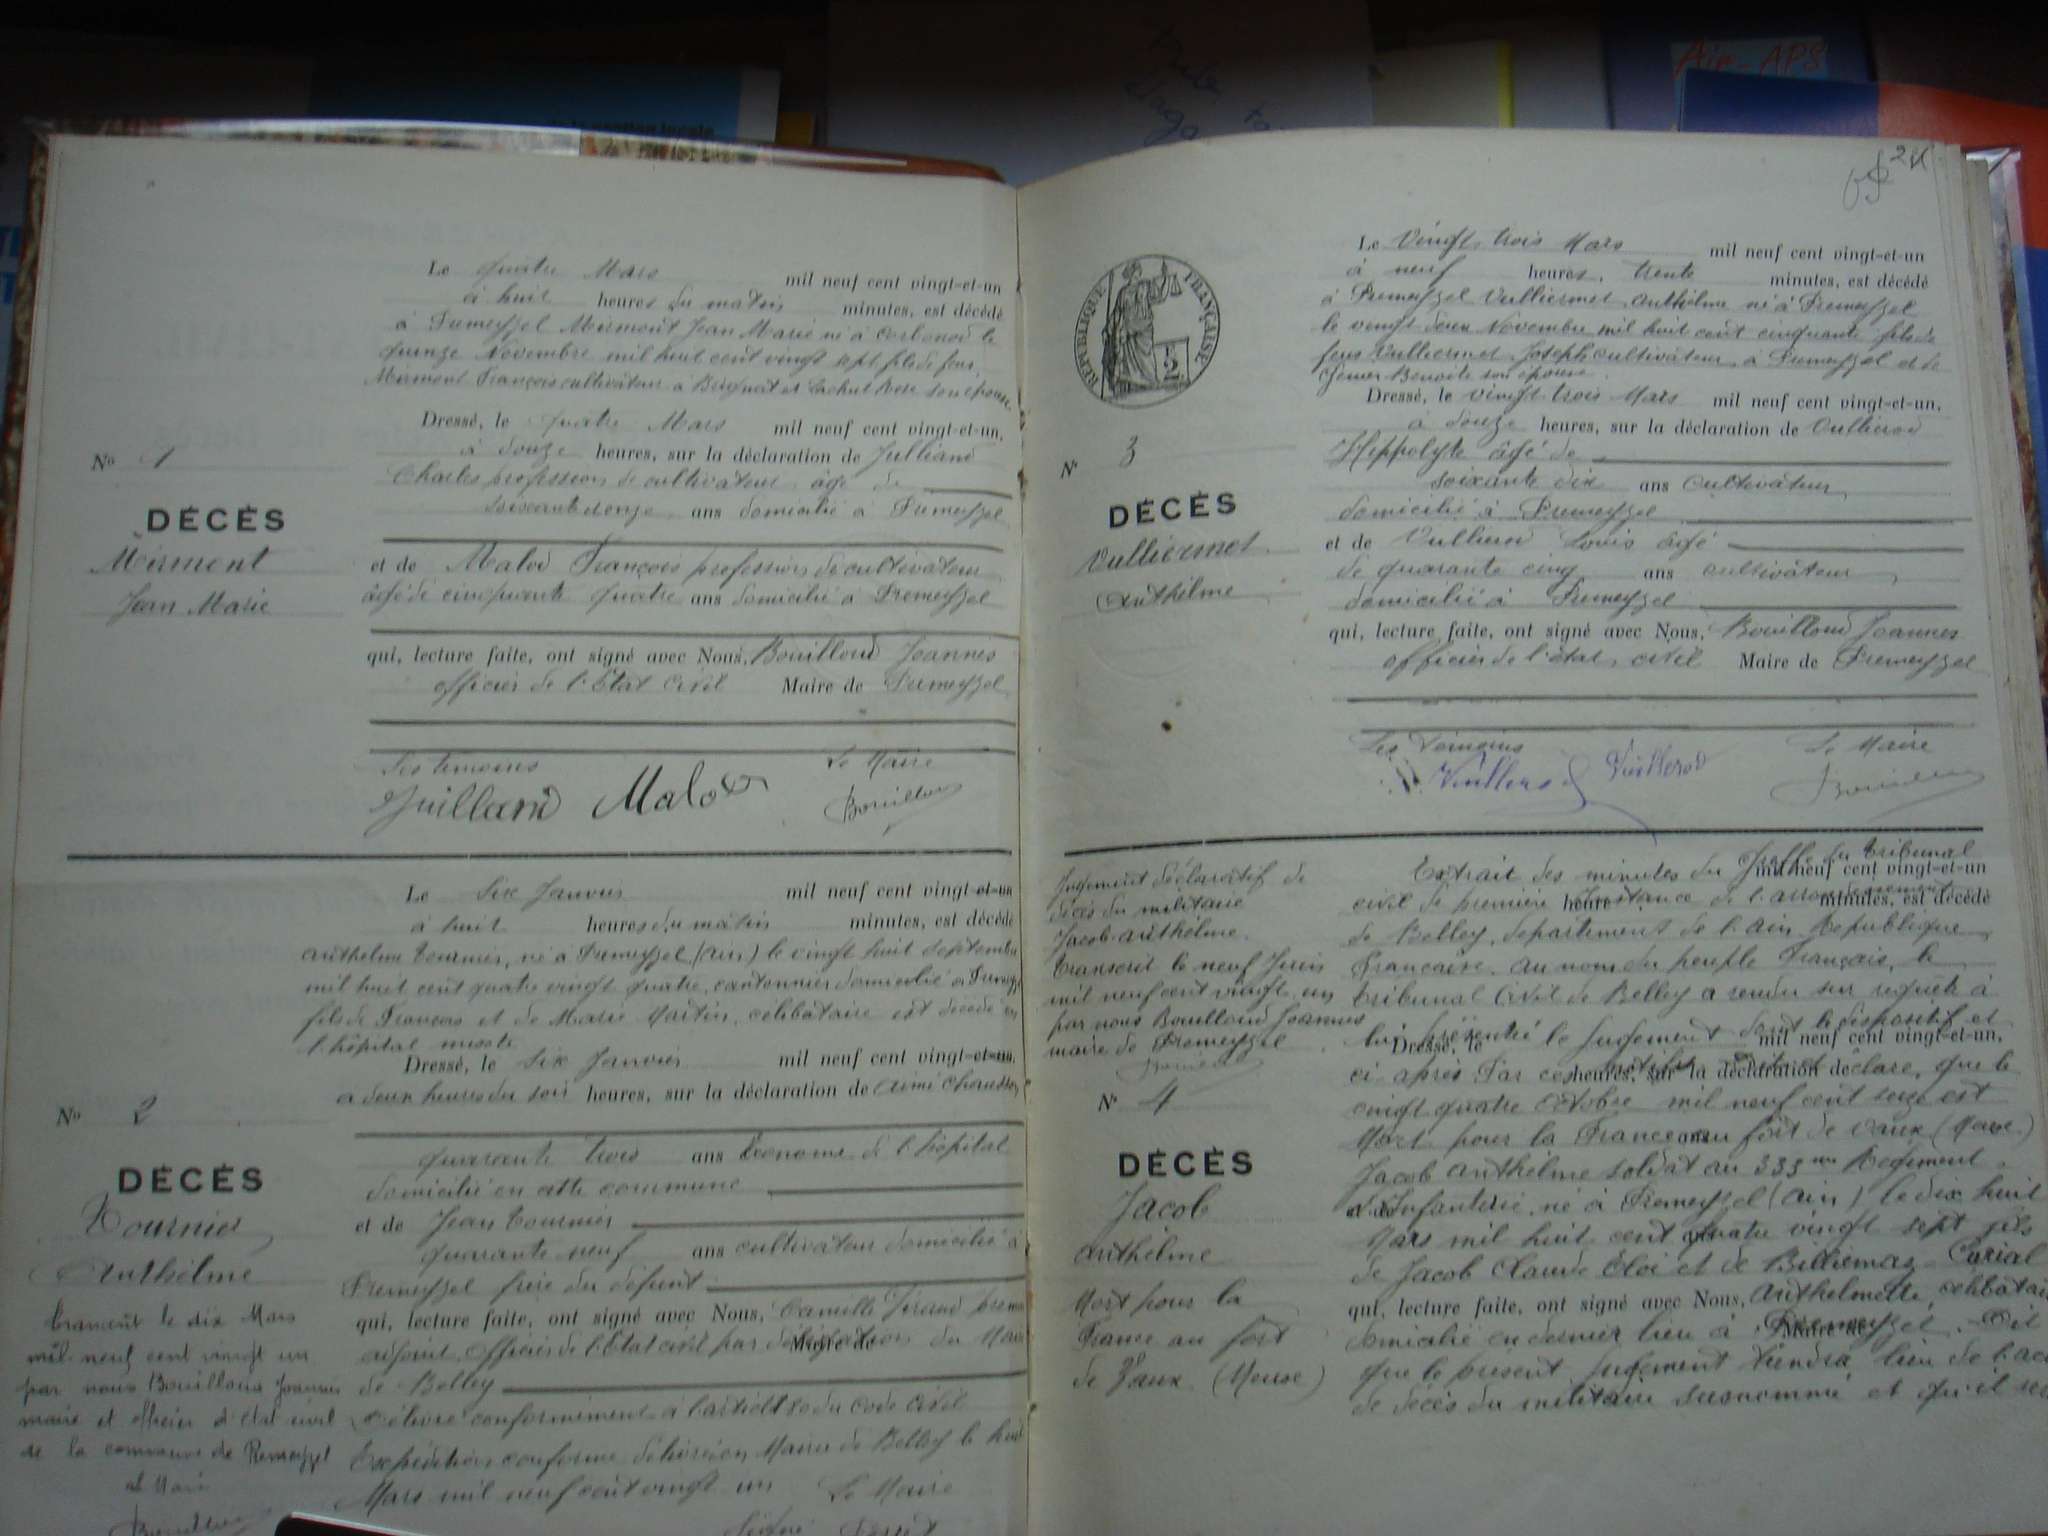 Air-APS
24
Le quatre Mars mil neuf cent vingt-et-un
à huit heures du matin minutes, est décédé
à Premeyzel Mermont Jean Marie né à Corbonod le
quinze Novembre mil huit cent vingt sept fils de feu
Mermont François cultivateur à et son épouse
Dressé, le quatre Mars mil neuf cent vingt-et-un,
à douze heures, sur la déclaration de Juilland
Charles profession de cultivateur âgé de
ans domicilié à Premeyzel
et de Malod François profession de cultivateur
âgé de cinquante quatre ans domicilié à Premeyzel
qui, lecture faite, ont signé avec Nous, Bouilloud Joannès
officier de l'Etat civil Maire de Premeyzel
Les témoins Le Maire
Juilland Malod Bouilloud
No 1
DÉCÈS
Mermont
Jean Marie
Le six Janvier mil neuf cent vingt-et-un
à huit heures du matin minutes, est décédé
Anthelme Tournier, né à Premeyzel (Ain) le vingt huit septembre
mil huit cent quatre vingt quatre, cantonnier domicilié à
fils de François et de Marie Martin, célibataire est décédé en
l'hôpital mixte
Dressé, le six Janvier mil neuf cent vingt-et-un,
à deux heures du soir heures, sur la déclaration de Aimé
quarante trois ans Econome de l'hôpital
domicilié en cette commune
et de Jean Tournier
quarante neuf ans cultivateur domicilié à
Premeyzel frère du défunt
qui, lecture faite, ont signé avec Nous, Camille
adjoint, officier de l'Etat civil par délégation du Maire de
de Belley
délivré conformément à l'article 80 du Code Civil
Expédition conforme délivrée en Mairie de Belley le huit
Mars mil neuf cent vingt un Le Maire
Signé
No 2
DÉCÈS
Tournier
Anthelme
Transcrit le dix Mars
mil neuf cent vingt un
par nous Bouilloud Joannès
maire et officier d'état civil
de la commune de Premeyzel
Le Maire
Bouilloud
RÉPUBLIQUE FRANÇAISE
Le vingt trois Mars mil neuf cent vingt-et-un
à neuf heures, trente minutes, est décédé
à Premeyzel Vulliermet Anthelme né à Premeyzel
le vingt deux Novembre mil huit cent cinquante fils de
feus Vulliermet Joseph cultivateur à Premeyzel et de
Benoite son épouse
Dressé, le vingt trois Mars mil neuf cent vingt-et-un,
à douze heures, sur la déclaration de Vullierod
Hippolyte âgé de
soixante dix ans cultivateur
domicilié à Premeyzel
et de Vullierod Louis âgé
de quarante cinq ans cultivateur
domicilié à Premeyzel
qui, lecture faite, ont signé avec Nous, Bouilloud Joannès
officier de l'état civil Maire de Premeyzel
Les Témoins Le Maire
Vullierod Vullierod Bouilloud
No 3
DÉCÈS
Vulliermet
Anthelme
Jugement déclaratif de
décès du militaire
Jacob Anthelme.
Transcrit le neuf Juin
mil neuf cent vingt un
par nous Bouilloud Joannès
maire de Premeyzel
Bouilloud
No 4
DÉCÈS
Jacob
Anthelme
Mort pour la
France au fort
de Vaux (Meuse)
Extrait des minutes du Greffe du tribunal
mil neuf cent vingt-et-un
civil de première Instance de l'arrondissement
heures minutes, est décédé
de Belley, département de l'Ain République
Française. Au nom du peuple français, le
tribunal Civil de Belley a rendu sur requête à
lui présentée le Jugement dont le dispositif est
Dressé, le mil neuf cent vingt-et-un,
ci après Par ces motifs déclare, que le
heures, sur la déclaration de
vingt quatre Octobre mil neuf cent seize est
Mort pour la France au fort de Vaux (Meuse)
ans
Jacob Anthelme soldat au 333me Régiment
d'Infanterie, né à Premeyzel (Ain) le dix huit
et de
Mars mil huit cent quatre vingt sept fils
ans
de Jacob Claude Eloi et de Billiemaz Carial
qui, lecture faite, ont signé avec Nous, Anthelmette, célibataire
domicilié en dernier lieu à Premeyzel. Dit
Maire de
que le présent jugement tiendra lieu de l'acte
de décès du militaire susnommé, et qu'il sera